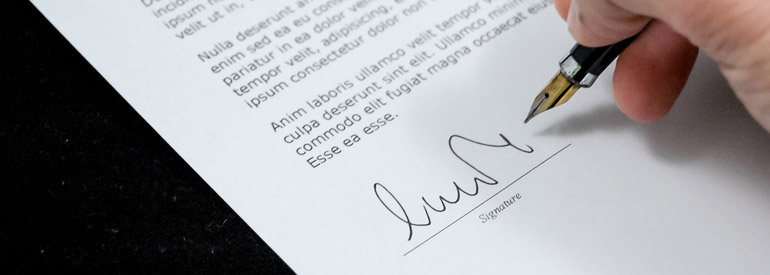 ipsum
velit ut in,
Nulla deserunt
enim sed ea eu
pariatur in ea dolor
tempor velit, adipisicing,
ipsum consectetur dolor non
Anim laboris ullamco velit tempor
culpa deserunt sint elit. Ullamco
commodo elit fugiat magna occaecat
Esse ea esse.
Signature